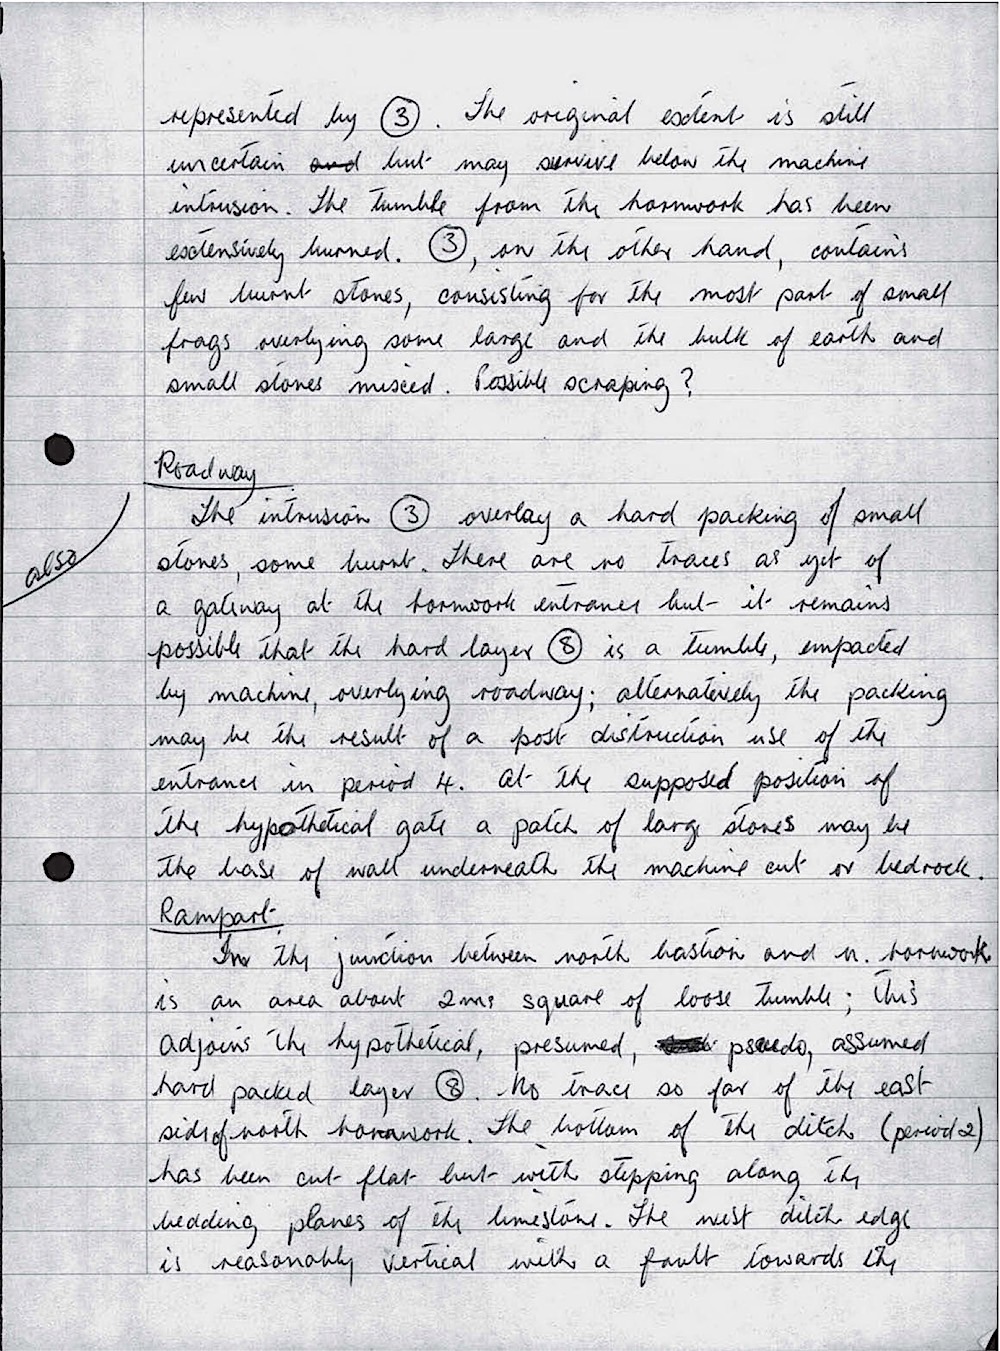 represented by ③. The original extent is still
uncertain and but may survive below the machine
intrusion. The tumble from the hornwork has been
extensively burned. ③, on the other hand, contains
few burnt stones, consisting for the most part of small
frags overlying some large and the bulk of earth and
small stones mixed. Possible scraping?
Roadway
The intrusion ③ overlay a hard packing of small
stones, some burnt. There are no traces as yet of
also
a gateway at the hornwork entrance but it remains
possible that the hard layer ⑧ is a tumble, empacted
by machine, overlying roadway; alternatively the packing
may be the result of a post distruction use of the
entrance in period 4. At the supposed position of
the hypothetical gate a patch of large stones may be
the base of wall underneath the machine cut or bedrock.
Rampart.
In the junction between north bastion and n. hornwork
is an area about 2ms square of loose tumble; this
adjoins the hypothetical, presumed, psuedo, assumed
hard packed layer ⑧. No trace so far of the east
side of north hornwork. The bottom of the ditch (period 2)
has been cut flat but with stepping along the
bedding planes of the limestone. The west ditch edge
is reasonably vertical with a fault towards the